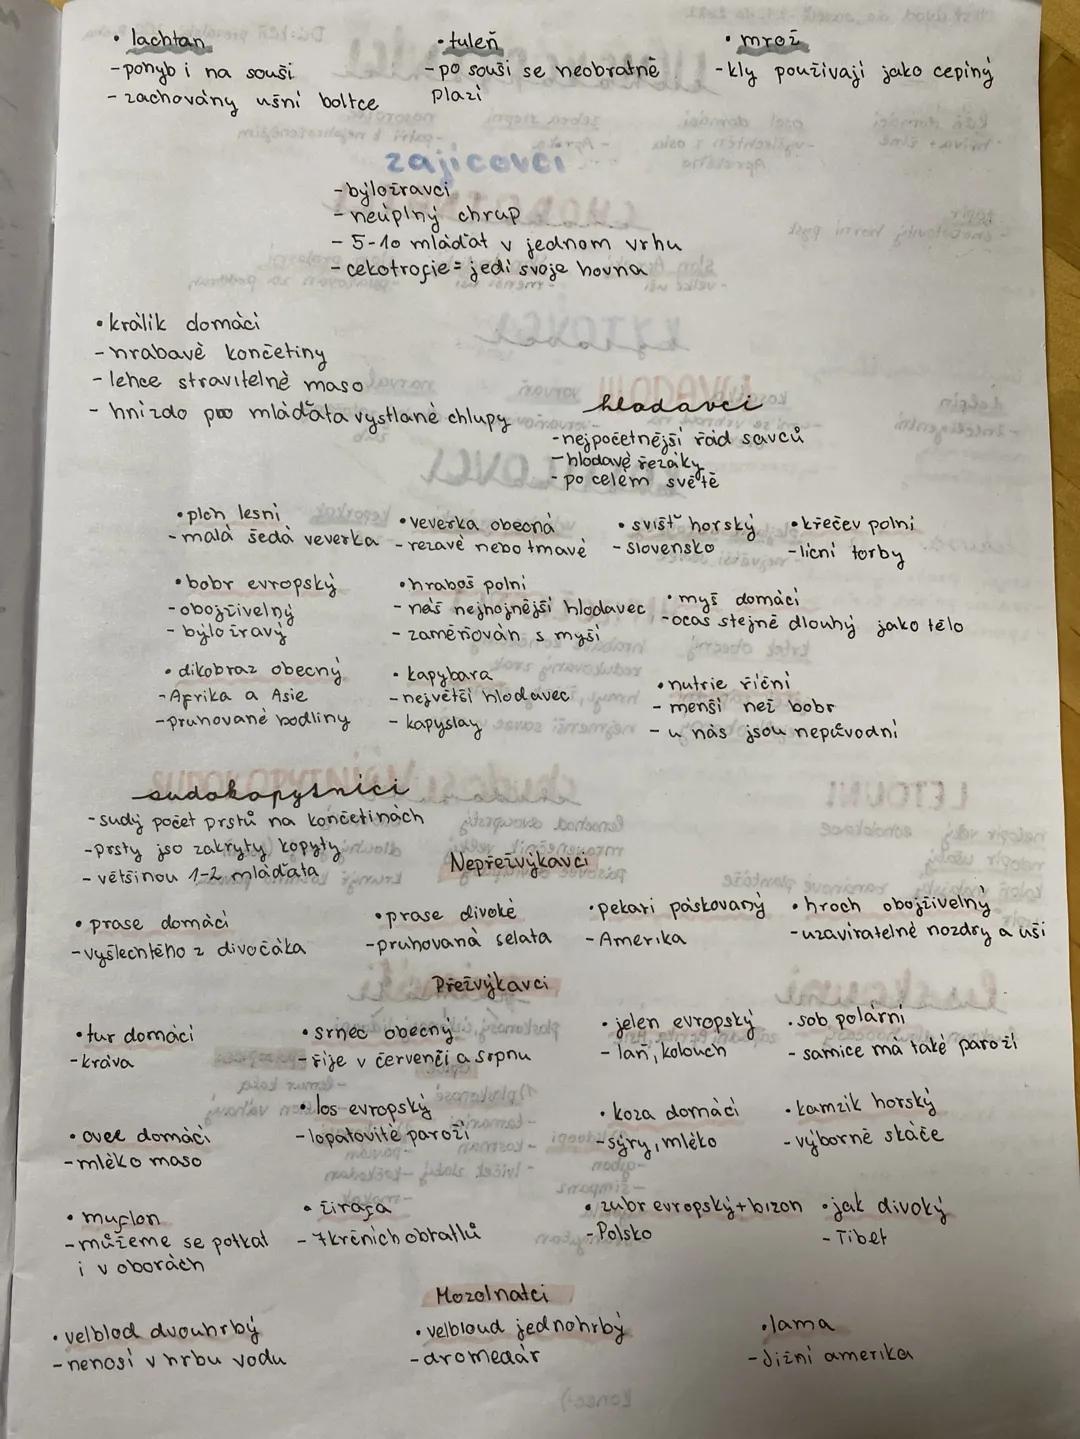 • lachtan
- pohyb i na souši
- zachovány ušní boltce
• tuleň
- po souši se neobratně
plazí
• mrož
- kly používají jako cepíny
zajícovci
- býložravci
- neúplný chrup
- 5-10 mláďat v jednom vrhu
- cekotrofie = jedí svoje hovna
• králík domácí
- hrabavé končetiny
- lehce stravitelné maso
- hnízdo pro mláďata vystlané chlupy
hlodavci
- nejpočetnější řád savců
- hlodavé řezáky
- po celém světě
• plch lesní
- malá šedá veverka
• veverka obecná
- rezavé nebo tmavé
• svišť horský
- Slovensko
• křeček polní
- lícní torby
• bobr evropský
- obojživelný
- býložravý
• hraboš polní
- náš nejhojnější hlodavec
- zaměňován s myší
• myš domácí
- ocas stejně dlouhý jako tělo
• dikobraz obecný
- Afrika a Asie
- pruhované bodliny
• kapybara
- největší hlodavec
- kapyslay
• nutrie říční
- menší než bobr
- u nás jsou nepůvodní
sudokopytníci
- sudý počet prstů na končetinách
- prsty jso zakryty kopyty
- většinou 1-2 mláďata
Nepřežvýkavci
• prase domácí
- vyšlechtěno z divočáka
• prase divoké
- pruhovaná selata
• pekari páskovaný
- Amerika
• hroch obojživelný
- uzavíratelné nozdry a uši
Přežvýkavci
• tur domácí
- kráva
• srnec obecný
- říje v červenci a srpnu
• jelen evropský
- laň, kolouch
• sob polární
- samice má také paroží
• ovce domácí
- mléko maso
• los evropský
- lopatovité paroží
• koza domácí
- sýry, mléko
• kamzík horský
- výborně skáče
• muflon
- můžeme se potkat
i v oborách
• žirafa
- 7 krčních obratlů
• zubr evropský + bizon
- Polsko
• jak divoký
- Tibet
Mozolnatci
• velbloud dvouhrbý
- nenosí v hrbu vodu
• velbloud jednohrbý
- dromedár
• lama
- Jižní amerika